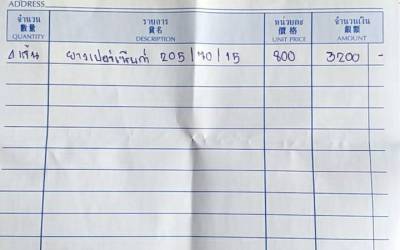 ADDRESS
จำนวน รายการ หน่วยละ จำนวนเงิน
數量 貨名 價格 銀額
QUANTITY DESCRIPTION UNIT PRICE AMOUNT
4 เส้น ยางเปอร์เซ็นต์ 205/70/15 800 3200 -